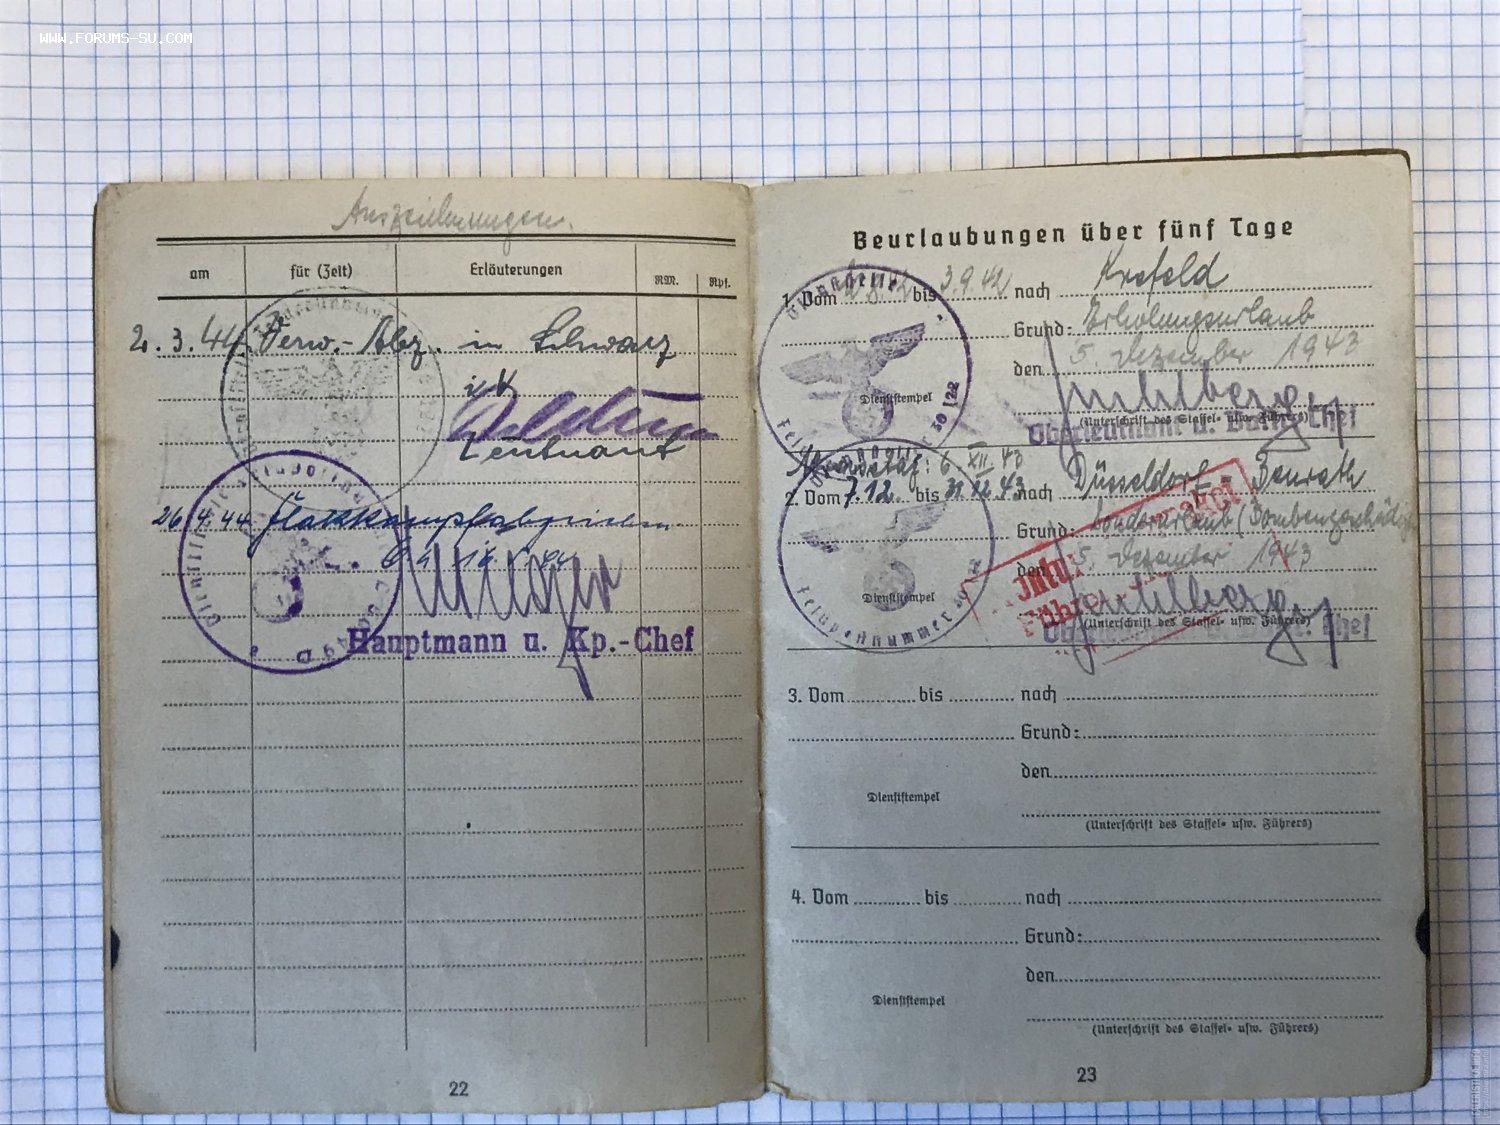 WWW.FORUMS-SU.COM
Auszeichnungen.
am für (Zeit) Erläuterungen RM. Rpf.
2.3.44. Verw.-Abz. in Schwarz
Leutnant
26.4.44 Flakkampfabzeichen
Hauptmann u. Kp.-Chef
22
Beurlaubungen über fünf Tage
1. Vom bis 3.9.42 nach Krefeld
Grund: Erholungsurlaub
den 5. Dezember 1943
Dienststempel
(Unterschrift des Staffel- usw. Führers)
Oberleutnant u. Battr.-Chef
6. XII. 43
2. Vom 7.12. bis 31.12.43 nach Düsseldorf - Benrath
Grund: Sonderurlaub
den 5. Dezember 1943
Dienststempel
Feldpostnummer
(Unterschrift des Staffel- usw. Führers)
3. Vom bis nach
Grund:
den
Dienststempel
(Unterschrift des Staffel- usw. Führers)
4. Vom bis nach
Grund:
den
Dienststempel
(Unterschrift des Staffel- usw. Führers)
23